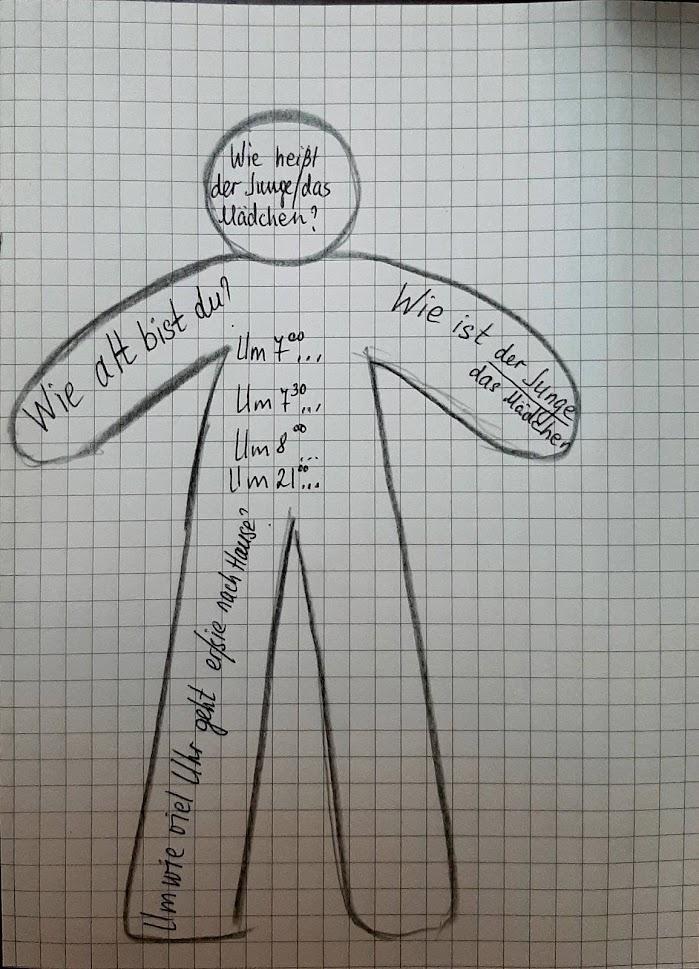 Wie heißt
der Junge/das
Mädchen?
Wie alt bist du?
Wie ist der Junge
das Mädchen
Um 7⁰⁰...
Um 7³⁰...
Um 8⁰⁰...
Um 21⁰⁰...
Um wie viel Uhr geht er/sie nach Hause?